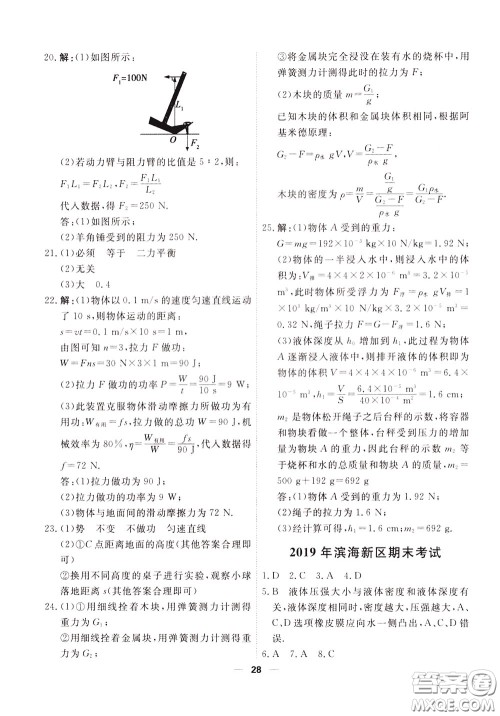 20.解:(1)如图所示:
F₁=100N
L₁
O
F₂
(2)若动力臂与阻力臂的比值是5∶2,则:
F₁L₁=F₂L₂,F₂=F₁L₁/L₂
代入数据,得 F₂=250 N.
答:(1)如图所示;
(2)羊角锤受到的阻力为 250 N.
21.(1)必须 等于 二力平衡
(2)无关
(3)大 0.4
22.解:(1)物体以 0.1 m/s 的速度匀速直线运动
了 10 s,则物体运动的距离:
s=vt=0.1 m/s×10 s=1 m,
由图可知 n=3,拉力 F 做的功:
W=Fns=30 N×3×1 m=90 J;
(2)拉力 F 做功的功率 P=W/t=90 J/10 s=9 W;
(3)此装置克服物体滑动摩擦力所做功为有
用功:W有用=fs,拉力做功为 W=90 J,机
械效率为 80%,η=W有用/W=fs/90 J,代入数据得
f=72 N.
答:(1)拉力做的功为 90 J;
(2)拉力做功的功率为 9 W;
(3)物体与地面间的滑动摩擦力为 72 N.
23.(1)势 不变 不做功 匀速直线
(2)①点距离地面的高度(其他答案合理即
可)
②换用不同高度的桌子进行实验,观察小球
落地距离 s(其他答案合理即可)
24.(1)①用细线拴着木块,用弹簧测力计测得
重力为 G₁;
②用细线拴着金属块,用弹簧测力计测得重
力为 G₂;
③将金属块完全浸没在装有水的烧杯中,用
弹簧测力计测得此时的拉力为 F;
(2)木块的质量 m=G₁/g;
已知木块的体积和金属块体积相同,根据阿
基米德原理:
G₂-F=ρ水 gV,V=(G₂-F)/(ρ水 g)
木块的密度为 ρ=m/V=(G₁/g)/((G₂-F)/(ρ水 g))=G₁/(G₂-F)ρ水
25.解:(1)物体 A 受到的重力:
G=mg=192×10⁻³ kg×10 N/kg=1.92 N;
(2)物体的一半浸入水中,则浸入水中的体
积为:V浮=4×4×2×10⁻⁶ m³=3.2×10⁻⁵
m³,此时物体所受浮力为 F浮=ρ水 gV浮=
0.32 N,绳子拉力 F=G-F浮=1.6 N;
(3)液体深度从 h₀ 增加到 h₁,此过程物体
A 逐渐浸入液体中,则排开液体的体积即为
物体的体积 V=4×4×4×10⁻⁶ m³=6.4×
10⁻⁵ m³,h₁=V/S=6.4×10⁻⁵ m³/40×10⁻⁴ m²=1.6 cm;
m₂ 是物体松开绳子之后台秤的示数,将容器
和物块看做一个整体,台秤受到压力的增加
量为物块 A 的重力,因此台秤的示数 m₂ 等
于烧杯和水的总质量和物块的质量,m₂=
500 g+192 g=692 g
答:(1)物体 A 受到的重力为 1.92 N;
(2)绳子的拉力为 1.6 N;
(3)经计算可得,h₁ 为 1.6 cm,m₂ 为 692 g.
2019 年滨海新区期末考试
1.D 2.C 3.A 4.D
5.B 液体压强大小与液体密度和液体深度有
关,液体深度相同时,密度越大,压强越大,A、
C、D 选项橡皮膜应向水一侧凸出,A、C、D 错
误.
6.A 7.A 8.C
28